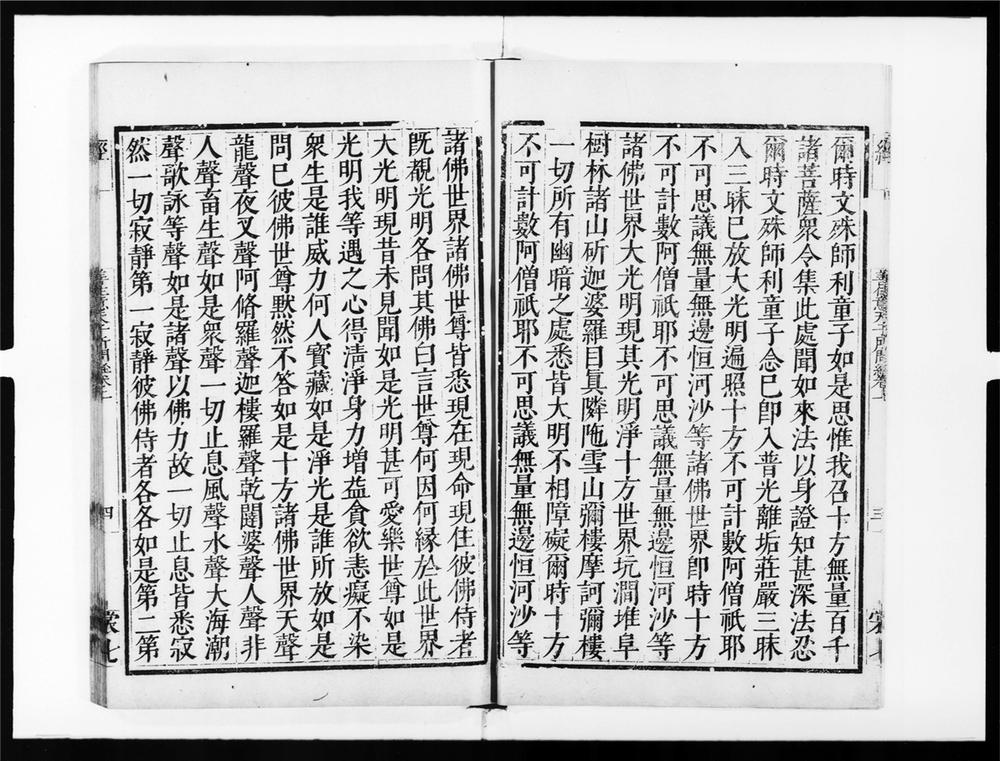 爾時文殊師利童子如是思惟我召十方無量百千
諸菩薩衆令集此處聞如來法以身證知甚深法忍
爾時文殊師利童子念已卽入普光離垢莊嚴三昧
入三昧已放大光明遍照十方不可計數阿僧祇耶
不可思議無量無邊恒河沙等諸佛世界卽時十方
不可計數阿僧祇耶不可思議無量無邊恒河沙等
諸佛世界大光明現其光明淨十方世界坑澗堆阜
樹林諸山斫迦婆羅目眞隣陁雪山彌樓摩訶彌樓
一切所有幽暗之處悉皆大明不相障礙爾時十方
不可計數阿僧祇耶不可思議無量無邊恒河沙等
諸佛世界諸佛世尊皆悉現在現命現住彼佛侍者
旣觀光明各問其佛曰言世尊何因何緣於此世界
大光明現昔未見聞如是光明甚可愛樂世尊如是
光明我等遇之心得淸淨身力增益貪欲恚癡不染
衆生是誰威力何人寶藏如是淨光是誰所放如是
問已彼佛世尊默然不答如是十方諸佛世界天聲
龍聲夜叉聲阿脩羅聲迦樓羅聲乾闥婆聲人聲非
人聲畜生聲如是衆聲一切止息風聲水聲大海潮
聲歌詠等聲如是諸聲以佛力故一切止息皆悉寂
然一切寂靜第一寂靜彼佛侍者各各如是第二第
經
四
裳七